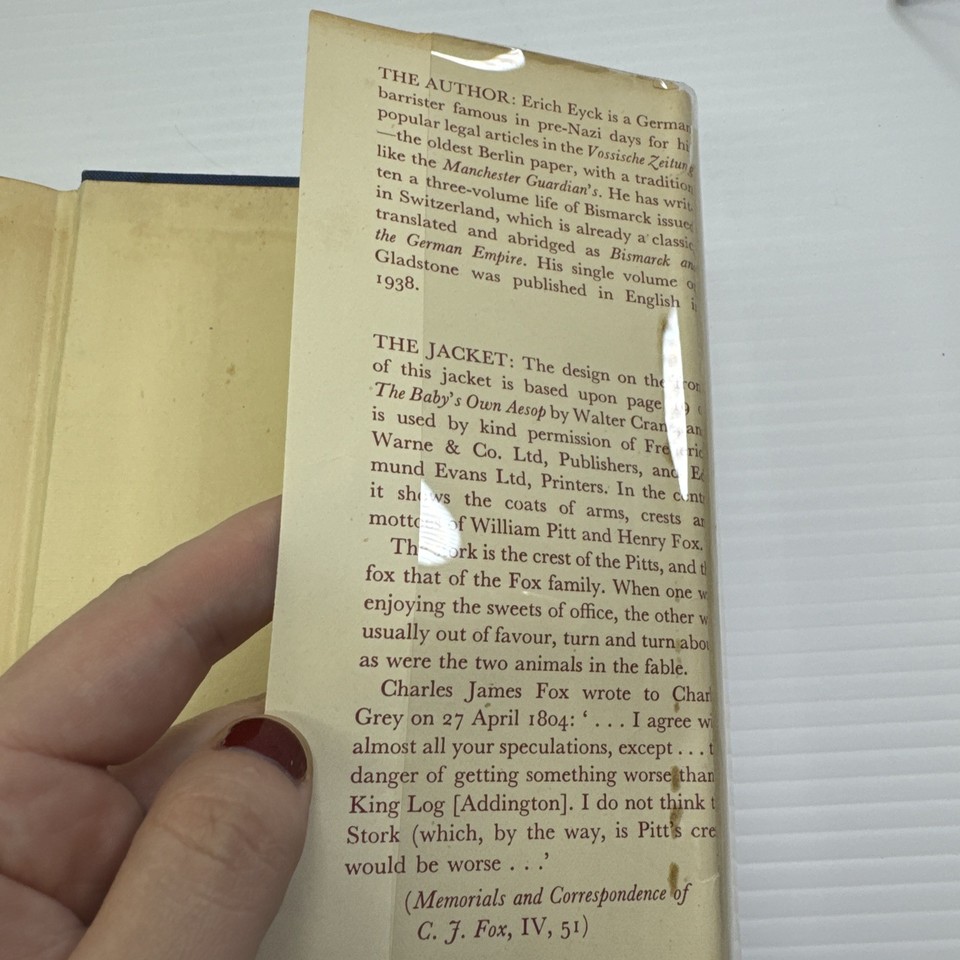 THE AUTHOR: Erich Eyck is a German
barrister famous in pre-Nazi days for hi
popular legal articles in the Vossische Zeitung
—the oldest Berlin paper, with a tradition
like the Manchester Guardian's. He has writ
ten a three-volume life of Bismarck issued
in Switzerland, which is already a classic
translated and abridged as Bismarck an
the German Empire. His single volume o
Gladstone was published in English i
1938.
THE JACKET: The design on the
of this jacket is based upon page
The Baby's Own Aesop by Walter Cran an
is used by kind permission of
Warne & Co. Ltd, Publishers, and Ed
mund Evans Ltd, Printers. In the cent
it shows the coats of arms, crests an
mottoes of William Pitt and Henry Fox.
The stork is the crest of the Pitts, and th
fox that of the Fox family. When one w
enjoying the sweets of office, the other w
usually out of favour, turn and turn abou
as were the two animals in the fable.
Charles James Fox wrote to Char
Grey on 27 April 1804: ‘. . . I agree wi
almost all your speculations, except . . . t
danger of getting something worse than
King Log [Addington]. I do not think t
Stork (which, by the way, is Pitt's cre
would be worse . . .’
(Memorials and Correspondence of
C. J. Fox, IV, 51)